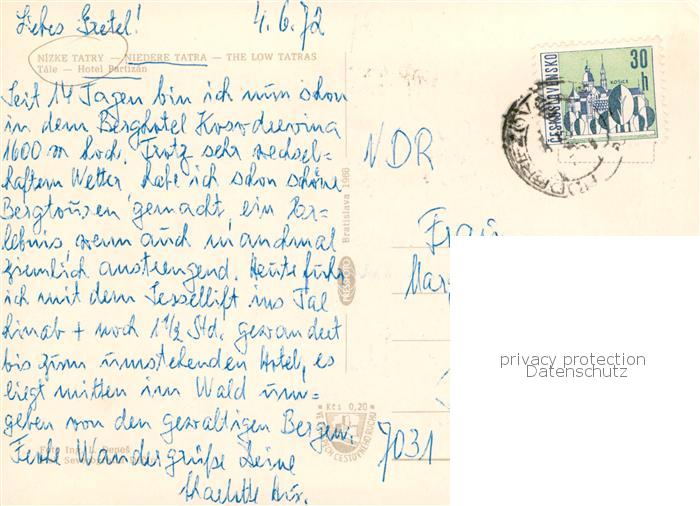 Liebes Gretel! 4.6.72
NÍZKE TATRY — NIEDERE TATRA — THE LOW TATRAS
Tále — Hotel Partizán
Seit 14 Tagen bin ich nun schon
in dem Berghotel Kosodrevina
1600 m hoch. Trotz sehr wechsel-
haftem Wetter habe ich schon schöne
Bergtouren gemacht, ein Er-
lebnis, wenn auch manchmal
ziemlich anstrengend. Heute fuhr
ich mit dem Sessellift ins Tal
hinab + noch 1 1/2 Std. gewandert
bis zum umstehenden Hotel, es
liegt mitten im Wald um-
geben von den gewaltigen Bergen.
Frohe Wandergrüße Deine
Charlotte
Foto Ing.
Kčs 0,20
Bratislava 1968
ČESKOSLOVENSKO
30 h
KOŠICE
NDR
Frau
7031
privacy protection
Datenschutz